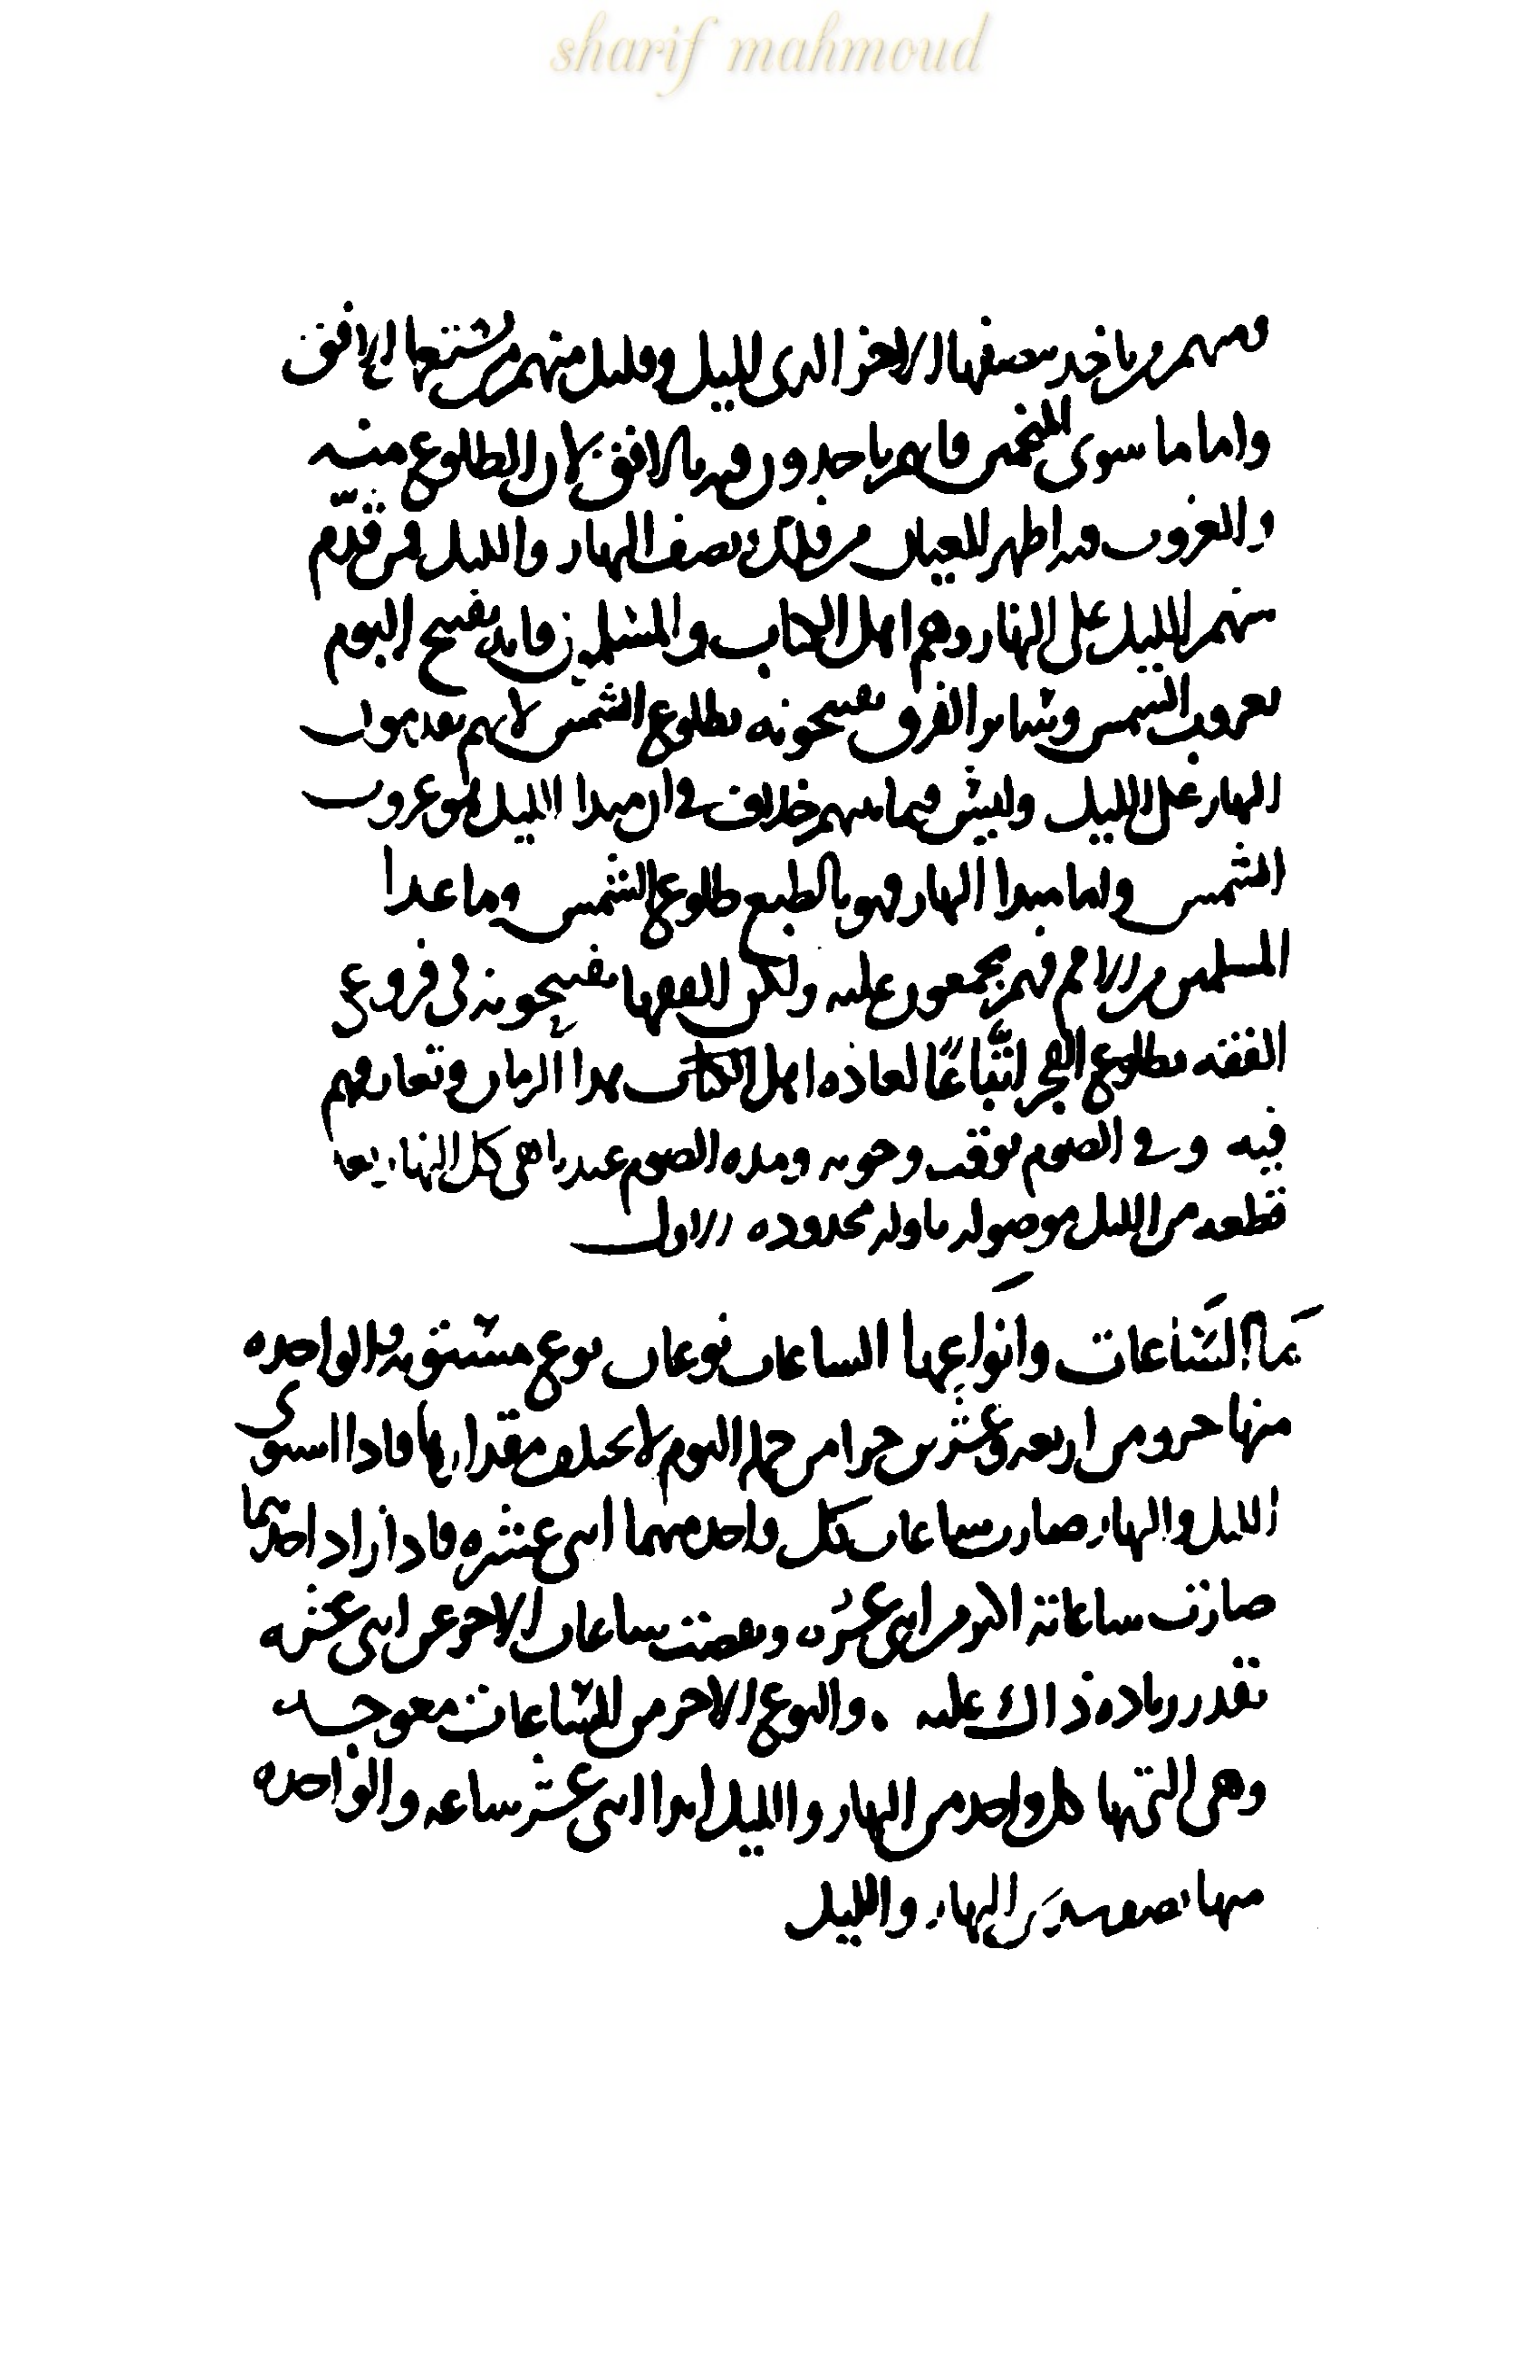 sharif mahmoud
ومنهم من ياخذ بنصفها الاخر الذي لليل وقليل منهم من يستعمل الافق
واما ما سوى المنجمين فانهم ياخذون فيه بالافق لان الطلوع منه
والغروب فيه اظهر للعيان من فلك نصف النهار والليل فمن قدم
منهم الليل على النهار وهم اهل الكتاب والمسلمين فانه يفتتح اليوم
بغروب الشمس وسائر الفرق يفتتحونه بطلوع الشمس لانهم يقدمون
النهار على الليل وليس فيما بينهم خلاف في ان مبدا الليل هو غروب
الشمس واما مبدا النهار فهو بالطبع طلوع الشمس وما عدا
المسلمين من الامم فهم مجمعون عليه ولكن الفقها يفتتحونه في فروع
الفقه بطلوع الفجر اتباعا لعادة اهل الكتاب بهذا الزمان وتعارفهم
فيه وفي الصوم توقت وجوبه ومدة الصوم عند راهى كل النهار
قطعه من الليل موصوله باوله محدوده الاول
ما الساعات وانواعها الساعات نوعان نوع مستويه والواحده
منها جزو من اربعه وعشرين جزا من جملة اليوم لا يختلف مقدارها فاذا استوى
الليل والنهار صارت ساعات كل واحد منهما اثنى عشره فاذا زاد احدهما
صارت ساعاته اكثر من اثنى عشره ونقصت ساعات الاخر عن اثنى عشره
بقدر زياده ذاك عليه . والنوع الاخر من الساعات معوجه
وهى التى بها كل واحد من النهار والليل ابدا اثنى عشر ساعه والواحده
منها نصف سدس النهار والليل